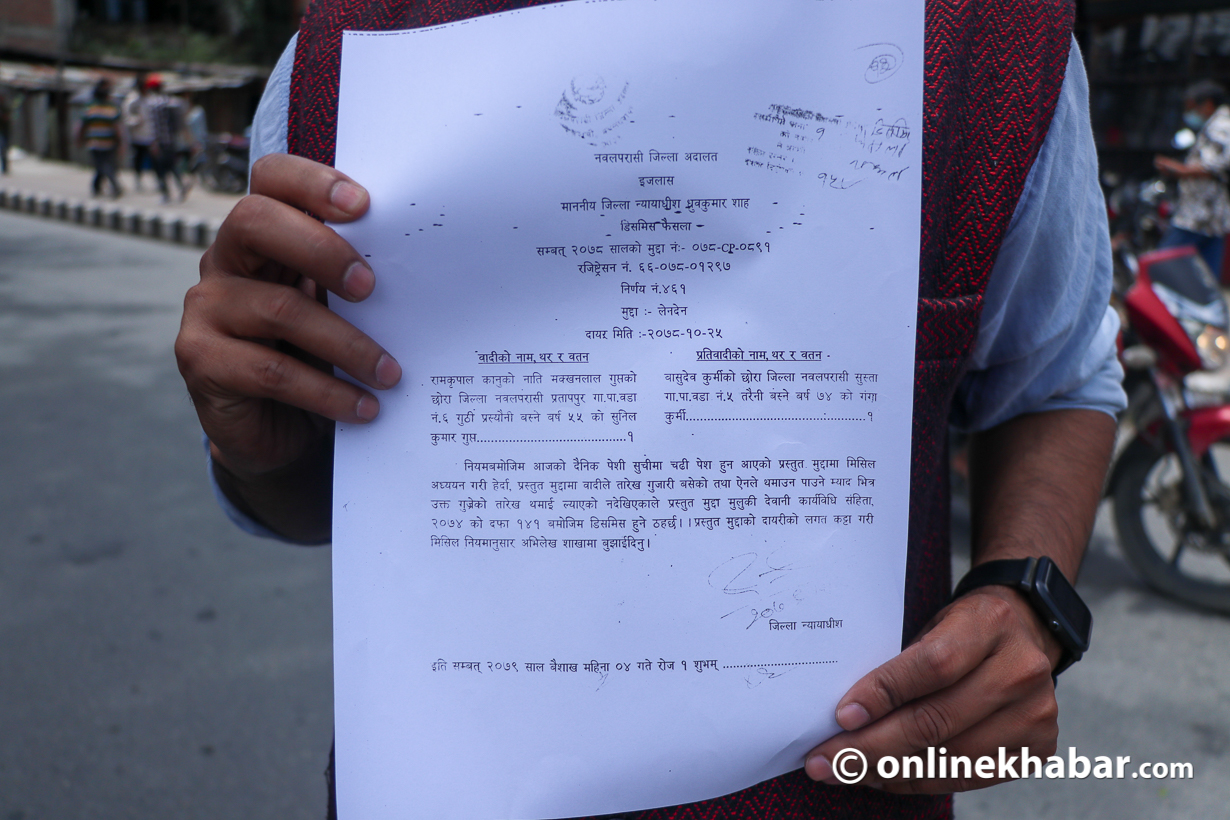 नवलपरासी जिल्ला अदालत
इजलास
माननीय जिल्ला न्यायाधीश ध्रुवकुमार शाह
डिसमिस फैसला
सम्बत् २०७८ सालको मुद्दा नं:- ०७८-CP-०८९१
रजिष्ट्रेसन नं. ६६-०७८-०१२९७
निर्णय नं.४६१
मुद्दा :- लेनदेन
दायर मिति :-२०७८-१०-२५
वादीको नाम, थर र वतन
रामकृपाल कानुको नाति मक्खनलाल गुप्तको
छोरा जिल्ला नवलपरासी प्रतापपुर गा.पा.वडा
नं.६ गुठी प्रस्यौनी बस्ने वर्ष ५५ को सुनिल
कुमार गुप्त..........................................१
प्रतिवादीको नाम, थर र वतन
बासुदेव कुर्मीको छोरा जिल्ला नवलपरासी सुस्ता
गा.पा.वडा नं.५ तरैनी बस्ने वर्ष ७४ को गंगा
कुर्मी..................................................१
नियमबमोजिम आजको दैनिक पेशी सुचीमा चढी पेश हुन आएको प्रस्तुत मुद्दामा मिसिल
अध्ययन गरी हेर्दा, प्रस्तुत मुद्दामा वादीले तारेख गुजारी बसेको तथा ऐनले थमाउन पाउने म्याद भित्र
उक्त गुज्रेको तारेख थमाई ल्याएको नदेखिएकाले प्रस्तुत मुद्दा मुलुकी देवानी कार्यविधि संहिता,
२०७४ को दफा १४१ बमोजिम डिसमिस हुने ठहर्छ।। प्रस्तुत मुद्दाको दायरीको लगत कट्टा गरी
मिसिल नियमानुसार अभिलेख शाखामा बुझाईदिनु।
जिल्ला न्यायाधीश
इति सम्बत् २०७९ साल बैशाख महिना ०४ गते रोज १ शुभम् ................................
© onlinekhabar.com